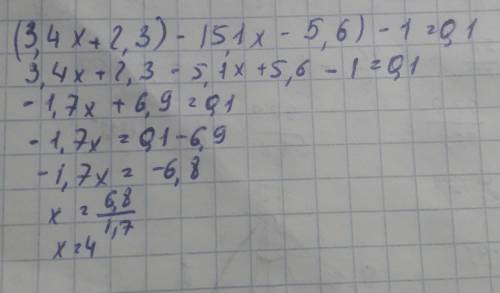 (3,4x+2,3) - (5,1x - 5,6) - 1 = 0,1
3,4x+2,3 - 5,1x+5,6 - 1 = 0,1
- 1,7x + 6,9 = 0,1
- 1,7x = 0,1 - 6,9
- 1,7x = -6,8
x = 6,8/1,7
x = 4